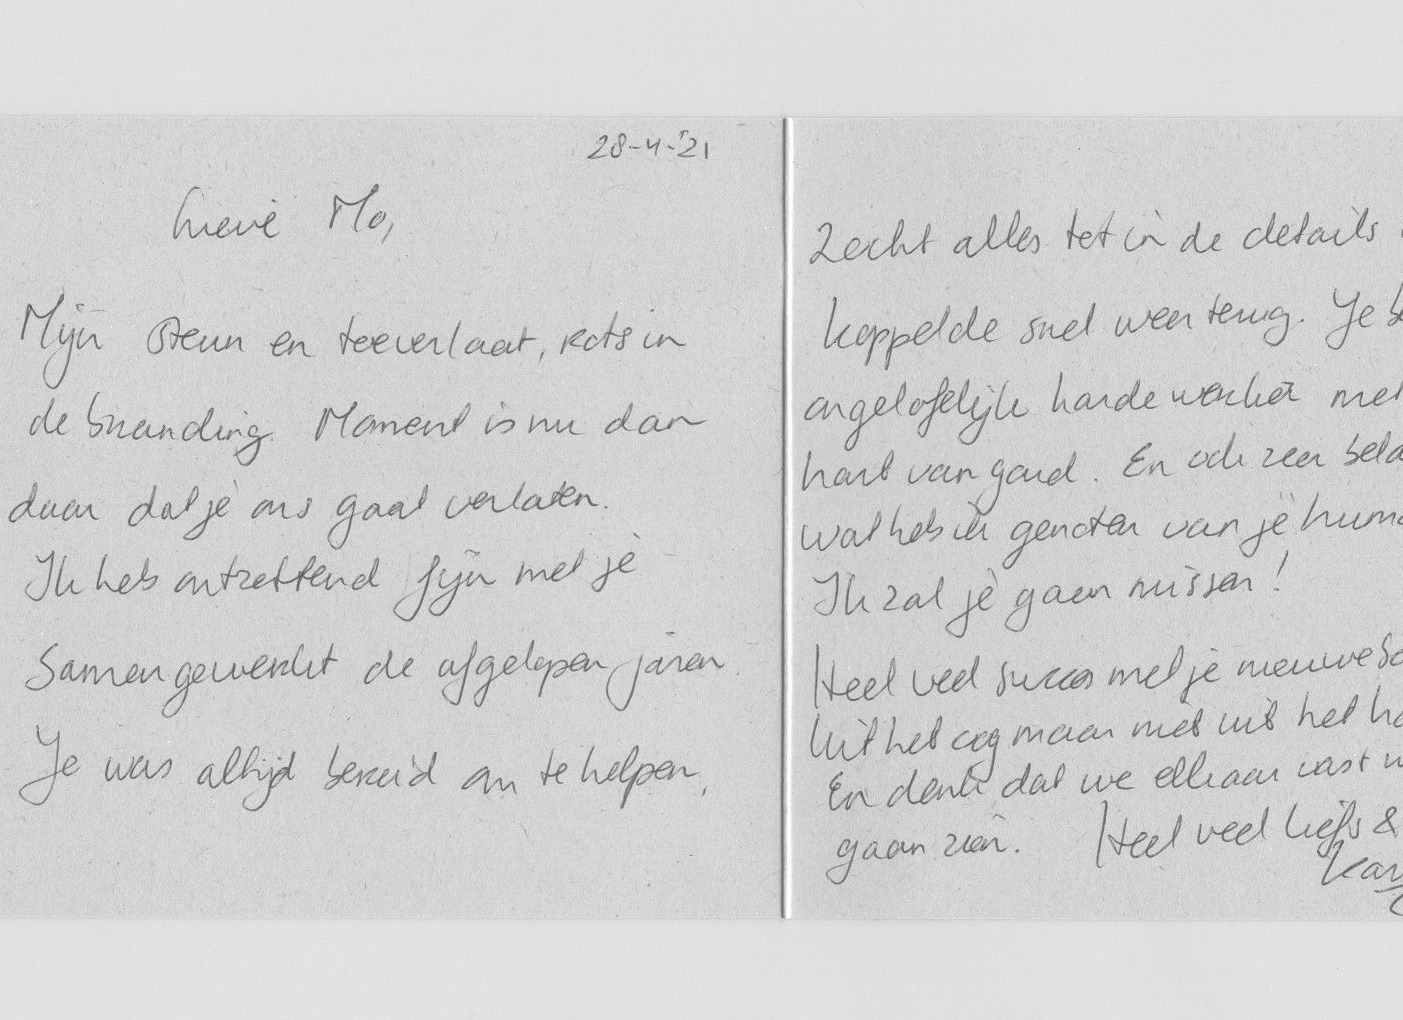 28-4-'21
Lieve Mo,
Mijn steun en toeverlaat, rots in
de branding. Moment is nu dan
daar dat je ons gaat verlaten.
Ik heb ontzettend fijn met je
samengewerkt de afgelopen jaren.
Je was altijd bereid om te helpen,
Zocht alles tot in de details
koppelde snel weer terug. Je
ongelofelijk harde werker met
hart van goud. En ook zeer
wat heb ik genoten van je
Ik zal je gaan missen!
Heel veel succes met je nieuwe
Uit het oog maar niet uit het
En denk dat we elkaar vast
gaan zien. Heel veel liefs &